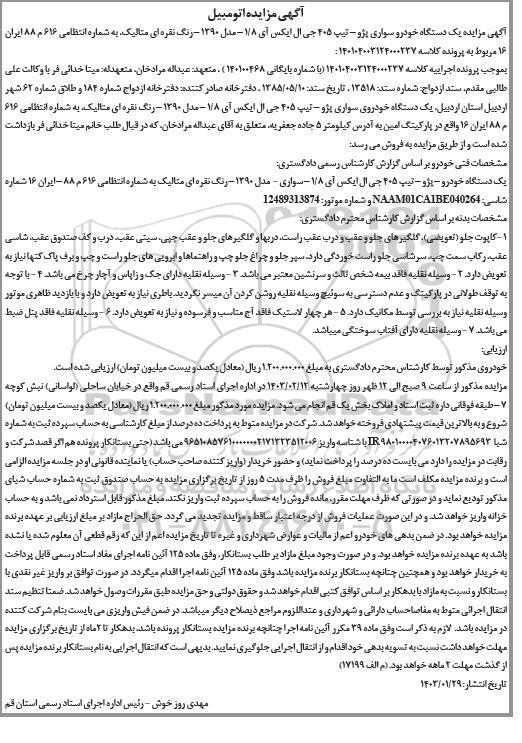 آگهی مزایده اتومبیل
آگهی مزایده یک دستگاه خودرو سواری پژو – تیپ ۴۰۵ جی ال ایکس آی ۱/۸ – مدل ۱۳۹۰ – رنگ نقره ای متالیک، به شماره انتظامی ۶۱۶ م ۸۸ ایران
۱۶ مربوط به پرونده کلاسه ۱۴۰۱۰۴۰۰۳۱۲۴۰۰۰۲۳۷ :
بموجب پرونده اجراییه کلاسه ۱۴۰۱۰۴۰۰۳۱۲۴۰۰۰۲۳۷ (با شماره بایگانی ۱۴۰۱۰۰۴۶۸) ، متعهد: عبداله مرادخان، متعهدله: میتا خدائی فر با وکالت علی
طالبی مقدم، سند ازدواج: شماره سند: ۱۳۵۱۸ ، تاریخ سند: ۱۳۸۵/۰۵/۱۰ ، دفترخانه صادر کننده: دفترخانه ازدواج شماره ۱۸۴ و طلاق شماره ۶۲ شهر
اردبیل استان اردبیل، یک دستگاه خودروی سواری پژو – تیپ ۴۰۵ جی ال ایکس آی ۱/۸ – مدل ۱۳۹۰ – رنگ نقره ای متالیک، به شماره انتظامی ۶۱۶
م ۸۸ ایران ۱۶ واقع در پارکینگ امین به آدرس کیلومتر ۵ جاده جعفریه، متعلق به آقای عبداله مرادخان، که در قبال طلب خانم میتا خدائی فر بازداشت
شده است و از طریق مزایده به فروش می رسد:
مشخصات فنی خودرو بر اساس گزارش کارشناس رسمی دادگستری:
یک دستگاه خودرو – پژو – تیپ ۴۰۵ جی ال ایکس آی ۱/۸ – سواری – مدل ۱۳۹۰ – رنگ نقره ای متالیک به شماره انتظامی ۶۱۶ م ۸۸ – ایران ۱۶ شماره
شاسی: NAAM01CA1BE040264 و شماره موتور: 12489313874
مشخصات بدنه بر اساس گزارش کارشناس محترم دادگستری:
۱– کاپوت جلو (تعویضی)، گلگیرهای جلو و عقب و درب عقب راست، دربها و گلگیرهای جلو و عقب چپ، سینی عقب، درب و کف صندوق عقب، شاسی
عقب، رکاب سمت چپ، سرشاسی جلو راست خوردگی دارد، سپر جلو و چراغ جلو چپ و راهنماها و ابرویی های جلو راست و چپ و برف پاک کنها نیاز به
تعویض دارد. ۲ – وسیله نقلیه فاقد بیمه شخص ثالث و سرنشین معتبر می باشد. ۳ – وسیله نقلیه دارای جک و زاپاس و آچار چرخ می باشد. ۴ – با توجه
به توقف طولانی در پارکینگ و عدم دسترسی به سوئیچ وسیله نقلیه روشن کردن آن میسر نگردید. باطری نیاز به تعویض دارد و با بازدید ظاهری موتور
وسیله نقلیه نیاز به بررسی توسط مکانیک دارد. ۵ – هر چهار لاستیک فاقد آج مناسب و فرسوده و نیاز به تعویض دارد. ۶ – وسیله نقلیه فاقد پنل ضبط
می باشد. ۷ – وسیله نقلیه دارای آفتاب سوختگی میباشد.
ارزیابی:
خودروی مذکور توسط کارشناس محترم دادگستری به مبلغ ۱.۲۰۰.۰۰۰.۰۰۰ ریال (معادل یکصد و بیست میلیون تومان) ارزیابی شده است.
مزایده مذکور از ساعت ۹ صبح الی ۱۲ ظهر روز چهارشنبه ۱۴۰۳/۰۲/۱۲ در اداره اجرای اسناد رسمی قم واقع در خیابان ساحلی (لواسانی) نبش کوچه
۷ – طبقه فوقانی داره ثبت اسناد و املاک بخش یک قم انجام می شود. مزایده مورد مذکور مبلغ ۱.۲۰۰.۰۰۰.۰۰۰ ریال (معادل یکصد و بیست میلیون تومان)
شروع و به بالاترین قیمت پیشنهادی فروخته خواهد شد. شرکت در مزایده منوط به پرداخت ده درصد از مبلغ کارشناسی به حساب سپرده ثبت به شماره
می باشد (حتی بستانکار پرونده هم اگر قصد شرکت و
رقابت در مزایده را دارد می بایست ده درصد را پرداخت نماید) و حضور خریدار (واریز کننده صاحب حساب) یا نماینده قانونی او در جلسه مزایده الزامی
است و برنده مزایده مکلف است ما به التفاوت مبلغ فروش را ظرف مدت ۵ روز از تاریخ برگزاری مزایده به حساب صندوق ثبت به شماره حساب شبای
مذکور تودیع نماید و در صورتی که ظرف مهلت مقرر، مانده فروش را به حساب سپرده ثبت واریز نکند، مبلغ مذکور قابل استرداد نمی باشد و به حساب
خزانه واریز خواهد شد. و در این صورت عملیات فروش از درجه اعتبار ساقط و مزایده تجدید می گردد. حق الحراج مازاد بر مبلغ ارزیابی بر عهده برنده
مزایده خواهد بود. در ضمن بدهی های خودرو اعم از مالیات و عوارض شهرداری و غیره تا تاریخ مزایده اعم از این که رقم قطعی آن معلوم شده یا نشده
باشد به عهده برنده مزایده خواهد بود. و در صورت وجود مبلغ مازاد بر طلب بستانکار، وفق ماده ۱۲۵ آئین نامه اجرای مفاد اسناد رسمی قابل پرداخت
به خریدار خواهد بود و همچنین چنانچه بستانکار برنده مزایده باشد وفق ماده ۱۲۵ آئین نامه اجرا اقدام میگردد. در صورت توافق بر واریز غیر نقدی با
بستانکار و نسبت به مازاد با بدهکار بر اساس توافق کتبی اقدام خواهد شد و حقوق دولتی و حق مزایده طبق مقررات وصول خواهد شد. ضمنا تنظیم سند
انتقال اجرائی منوط به مفاصاحساب دارائی و شهرداری و عنداللزوم مراجع ذیصلاح دیگر میباشد. در ضمن فیش واریزی می بایست بنام شرکت کننده
در مزایده باشد. لازم به ذکر است وفق ماده ۳۹ مکرر آئین نامه اجرا چنانچه برنده مزایده بستانکار پرونده باشد، بدهکار تا ۲ ماه از تاریخ برگزاری مزایده
مهلت خواهد داشت نسبت به تسویه بدهی خود اقدام و از انتقال اجرایی جلوگیری نمایید. بدیهی است که انتقال اجرایی به نام بستانکار برنده مزایده پس
از گذشت مهلت ۲ ماهه خواهد بود. (م الف ۱۷۱۹۹)
تاریخ انتشار: ۱۴۰۳/۰۱/۲۹
مهدی روز خوش – رئیس اداره اجرای اسناد رسمی استان قم